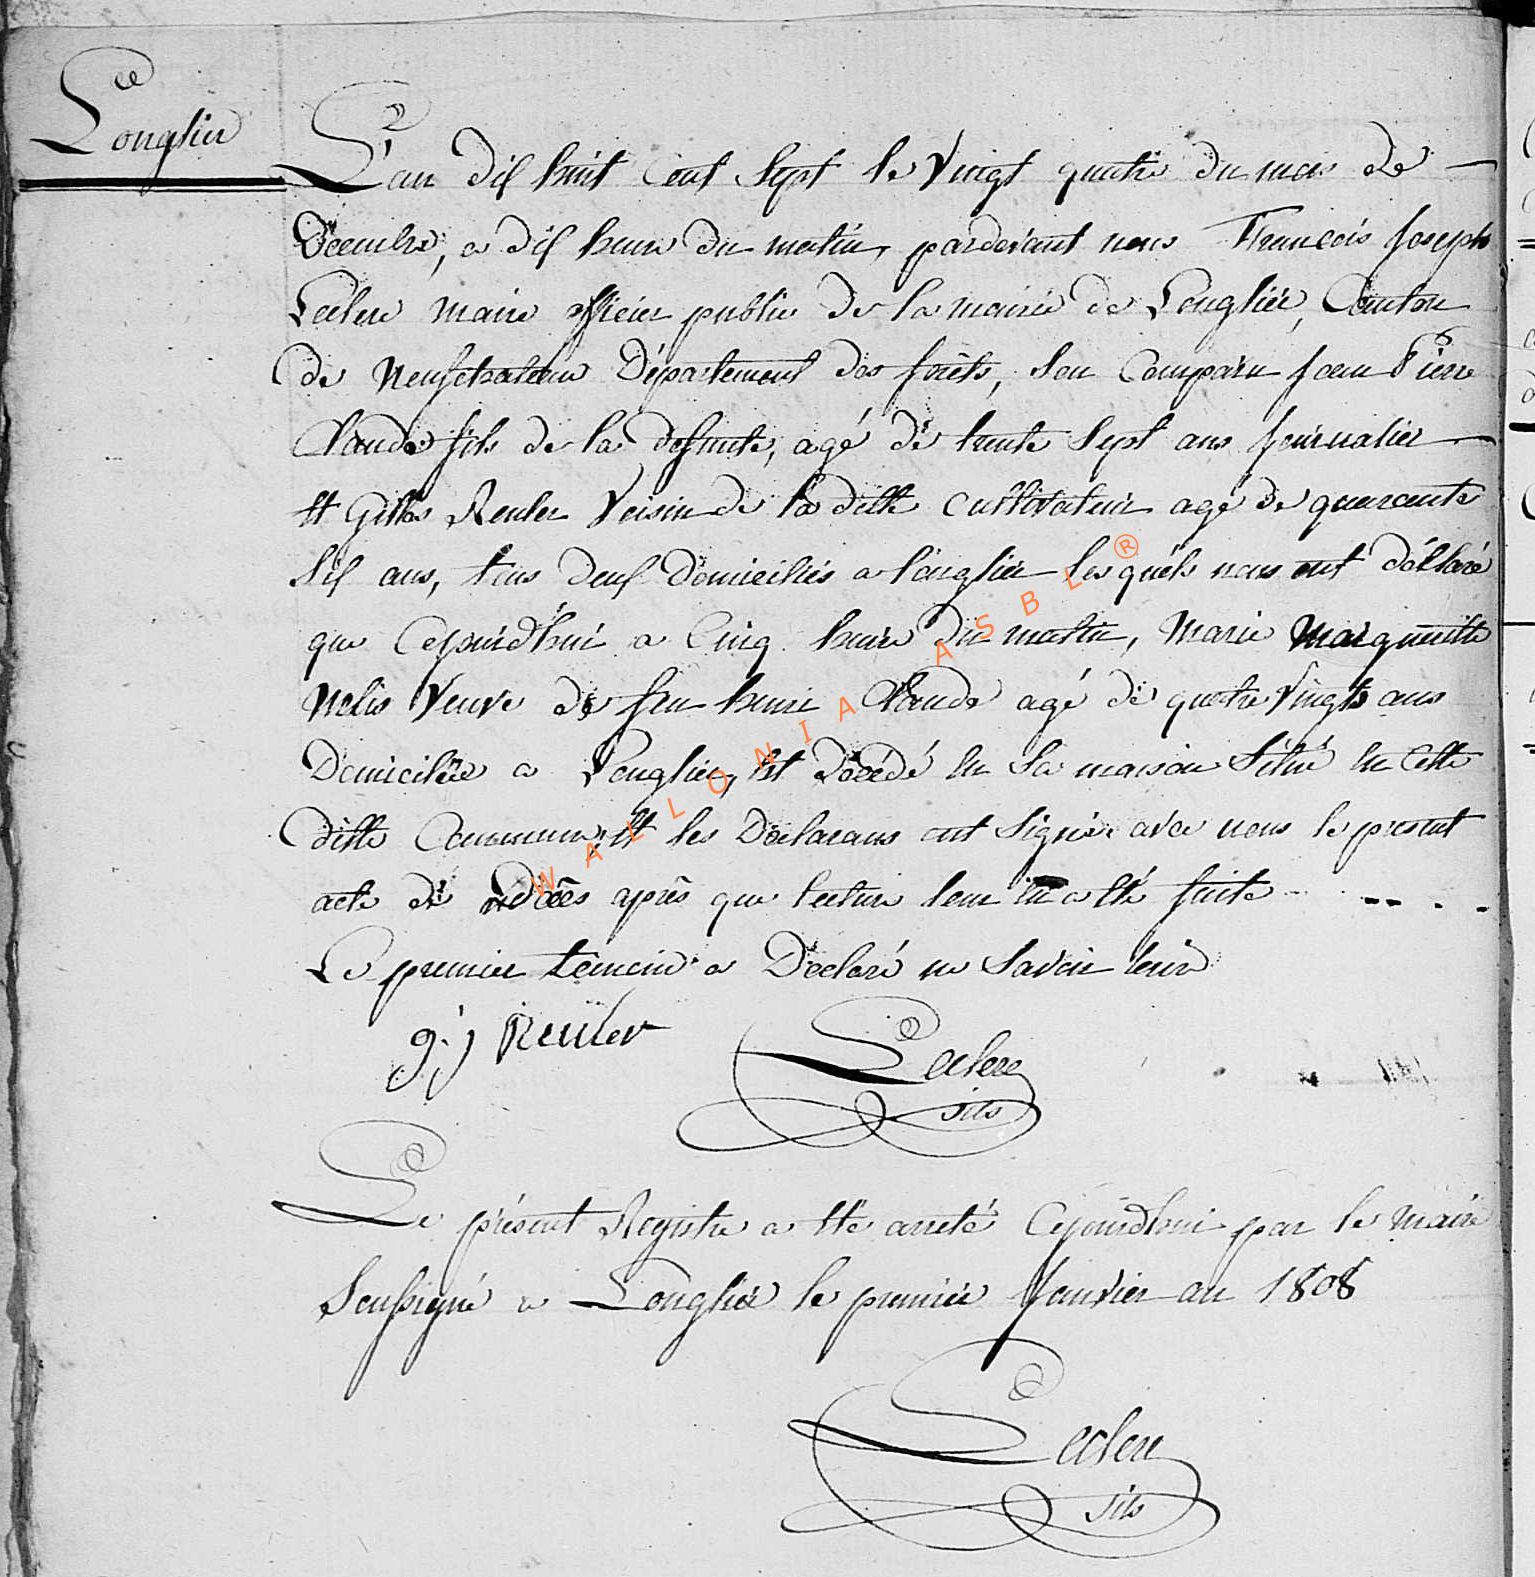 Longlier
L'an dix huit Cent Sept le Vingt quatre du mois de
Decembre, a dix heure du matin, pardevant nous François Joseph
Leclere maire officier public de la mairie de Longlier, Canton
de Neufchateau Département des forêts, Son Comparu Jean Pierre
Claude fils de la defunte, agé de trente Sept ans Journalier
Et Gilles Reuler Voisin de la ditte Cultivateur agé de quarante
Six ans, tous deux Domiciliés a Longlier Lesquéls nous ont Déclaré
que Cejourd'hui a Cinq heure du matin, Marie Marguerite
Nelis Veuve de feu henri Claude agé de quatre Vingts ans
Domiciliée a Longlier, Est Décédé En Sa maison Situé En Cette
ditte Commune, Et les Déclarans ont Signés avec nous le present
acte de Décès après que Lecture leur En a Eté faite
Le premier têmoin a Declaré ne Savoir Ecrire
g. j Reuler
Leclere
fils
Le présent Registre a Eté arreté Cejourdhui par le Maire
Soussigné a Longlier le premier Janvier an 1808
Leclere
fils
WALLONIA ASBL ®